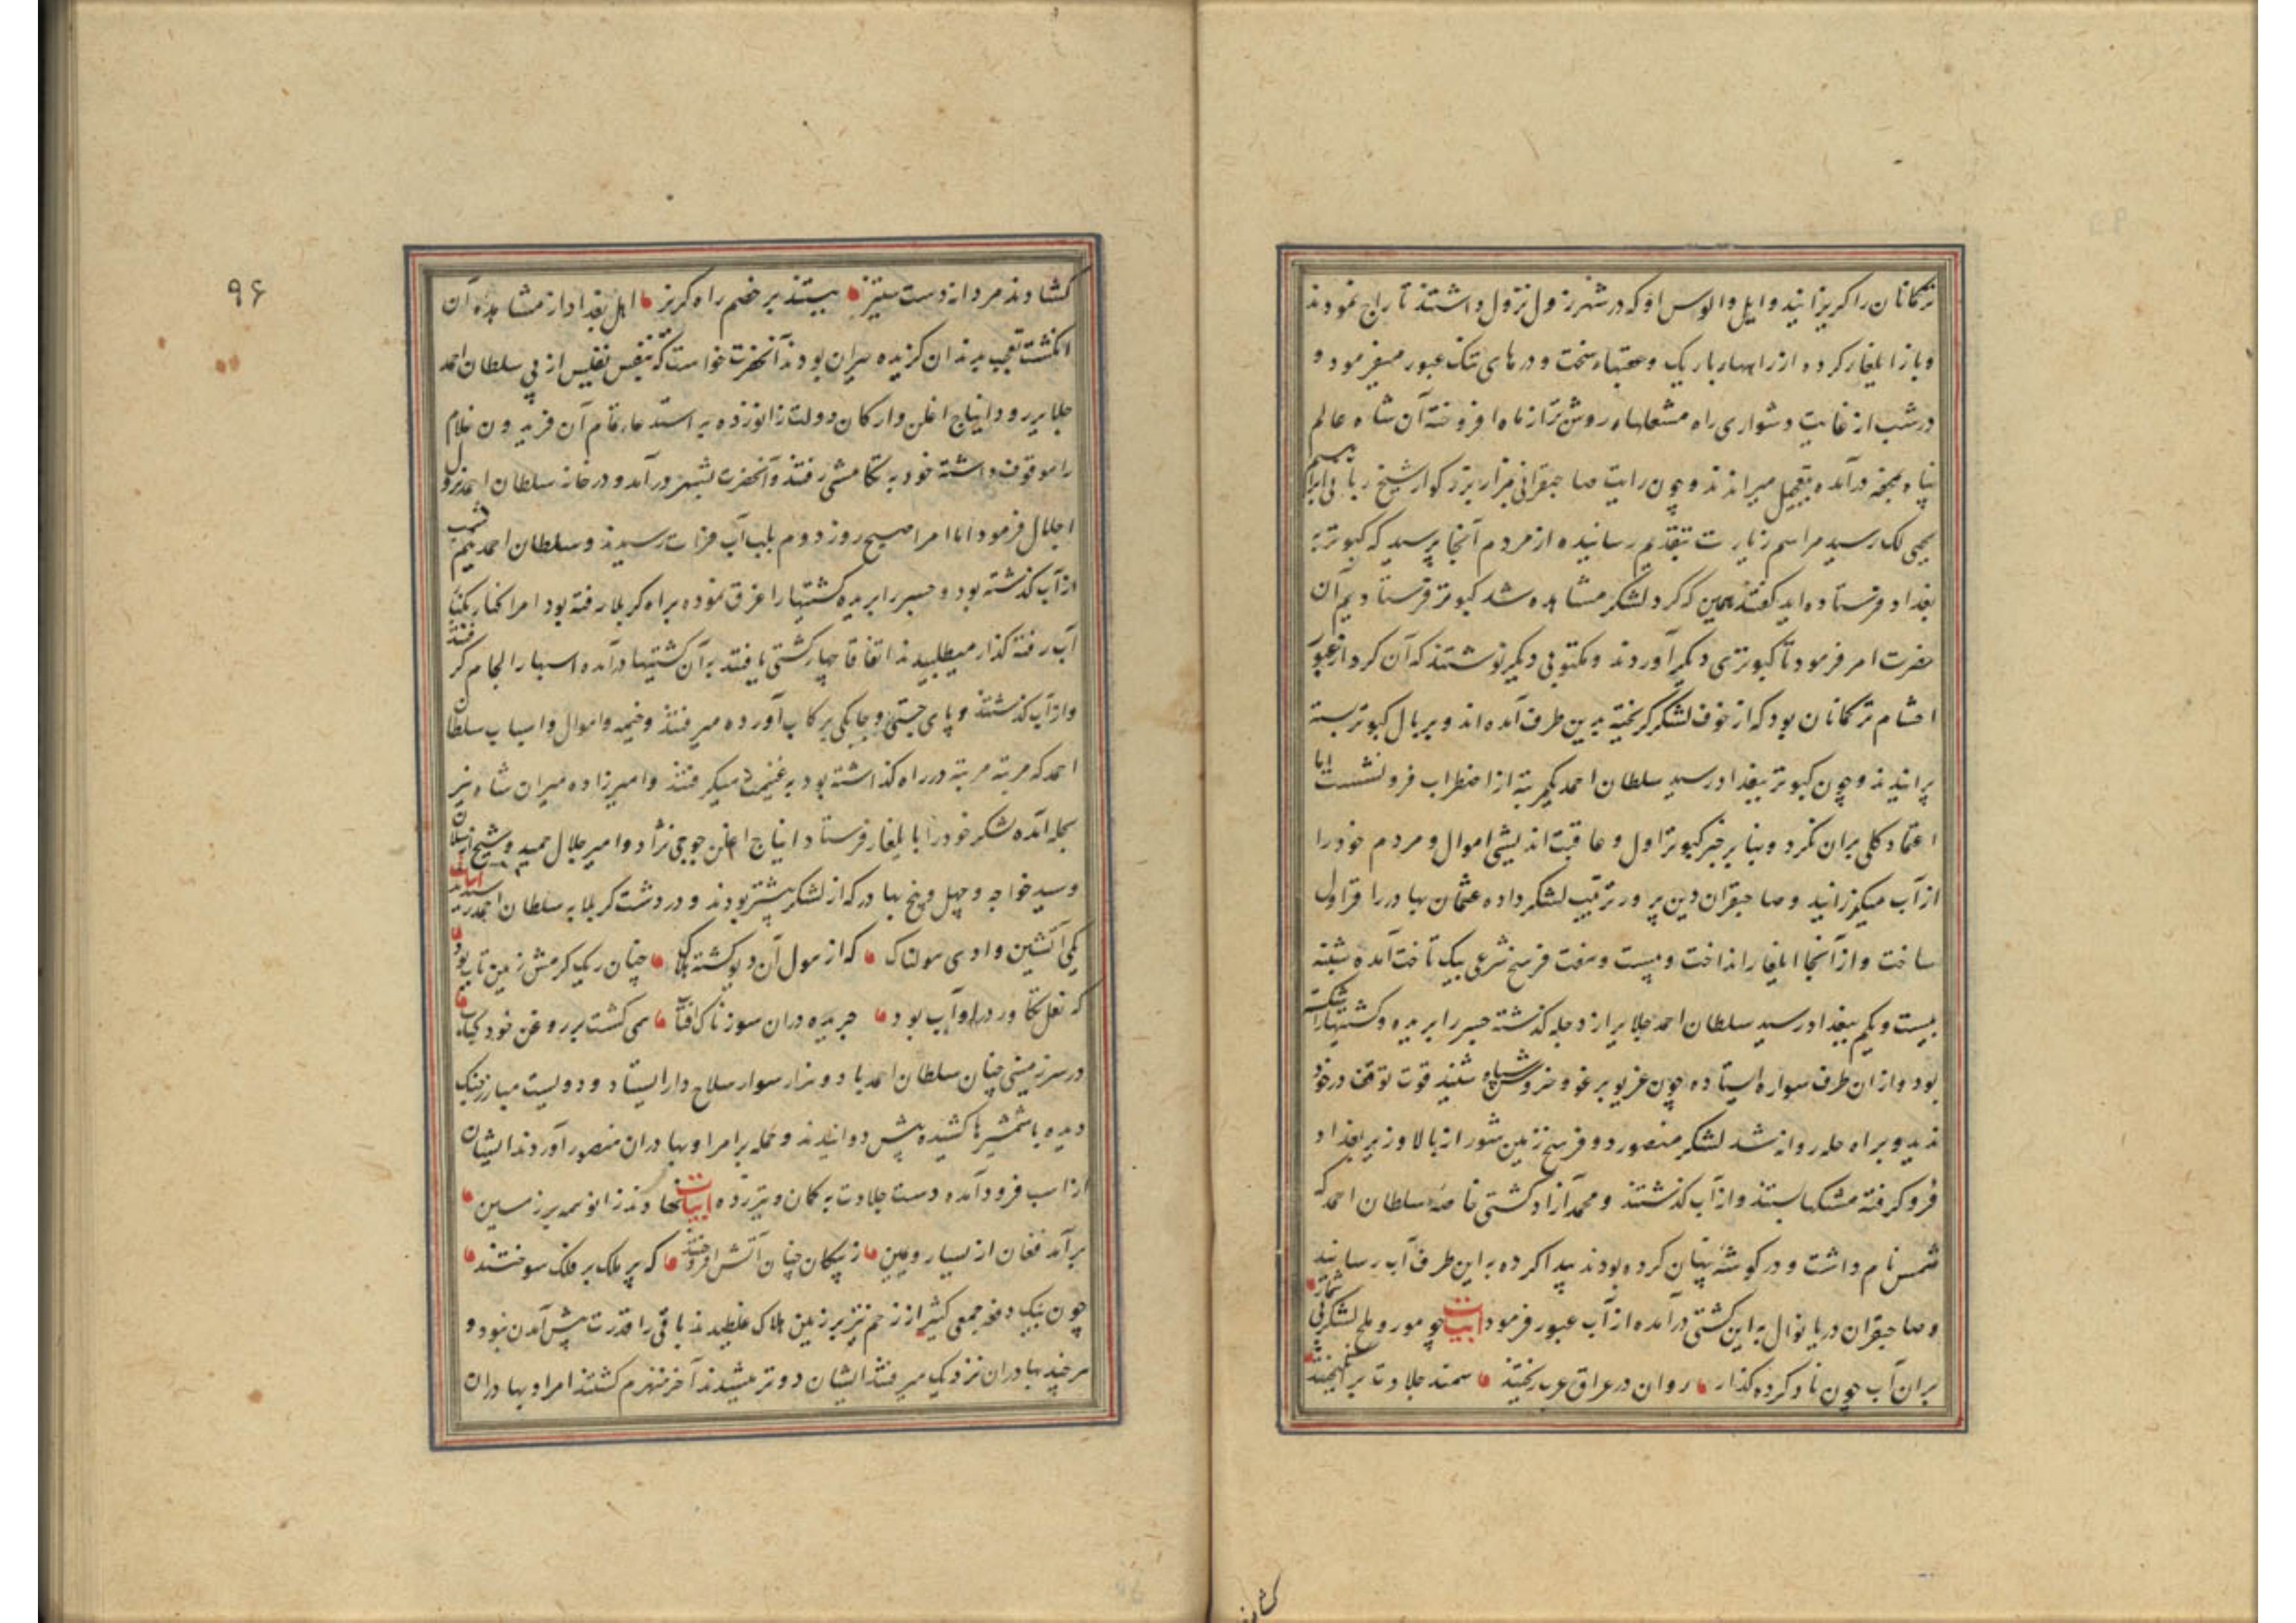 ترکمانان را کریزانید و ایل و الوس او که در شهرزول نزول داشتند تاراج نمودند
و باز ایلغار کرده از راههار باریک و عقبهاء سخت و درهای تنک عبور میفرمود و
در شب از غایت دشواری راه مشعلهاه روشن تر از ماه افروخته آن شاه عالم
پناه بمحفه درآمده بتعجیل میراندند و چون رایت صاحبقرانی بمزار بزرکوار شیخ ربانی ابراهیم
یحیی لک رسید مراسم زیارت بتقدیم رسانیده از مردم آنجا پرسید که کبوتر به
بغداد فرستاده اید کفتند همین که کرد لشکر مشاهده شد کبوتر فرستادیم آن
حضرت امر فرمود تا کبوتری دیکر آوردند و مکتوبی دیکر نوشتند که آن کرد از عبور
احشام ترکمانان بود که از خوف لشکر کریخته بدین طرف آمده اند و بر بال کبوتر بسته
پرانیدند و چون کبوتر ببغداد رسید سلطان احمد یکمرتبه از اضطراب فرو نشست اما
اعتماد کلی بران نکرد و بنابر خبر کبوتر اول و عاقبت اندیشی اموال و مردم خود را
از آب میکزرانید و صاحبقران دین پرور ترتیب لشکر داده عثمان بهادر را قراول
ساخت و از آنجا ایلغار انداخت و بیست و هفت فرسخ شرعی بیک تاخت آمده شنبه
بیست و یکم ببغداد رسید سلطان احمد جلایر از دجله کذشته جسر را بریده و کشتیها را شکسته
بود و از ان طرف سواره ایستاده چون غریو برغو و خروش سپاه شنید قوت توقف در خود
ندید و براه حله روانه شد لشکر منصور دو فرسخ زمین شور از بالا و زیر بغداد
فرو کرفته مشکها بستند و از آب کذشتند و محمد آزاد کشتی خاصه سلطان احمد که
شمس نام داشت و در کوشه پنهان کرده بودند پیدا کرده به این طرف آب رسانید
و صاحبقران دریا نوال به این کشتی درآمده از آب عبور فرمود ابیات چو مور و ملخ لشکر بی شمار
بران آب چون باد کرده کذار روان در عراق عرب ریختند سمند جلادت بر انکیختند
کشاوند
۹۶
کشاوند مردانه دست ستیز ببستند بر خصم راه کریز اهل بغداد از مشاهده آن
انکشت تعجب بدندان کزیده حیران بودند آنحضرت خواست که بنفس نفیس از پی سلطان احمد
جلایر رود ایناج اغلن و ارکان دولت زانو زده به استدعاء تمام آن فریدون غلام
را موقوف داشته خود به تکامشی رفتند و آنحضرت بشهر درآمد و در خانه سلطان احمد نزول
اجلال فرمود اما امرا صبح روز دوم بلب آب فرات رسیدند و سلطان احمد نیم شب
از آب کذشته بود و جسر را بریده کشتیها را غرق نموده براه کربلا رفته بود امرا کنار بکنار
آب رفته کذار میطلبیدند اتفاقا چهار کشتی یافتند به آن کشتیها درآمده اسبها را لجام کرفتند
و از آب کذشتند و پای جستی و چابکی برکاب آورده میرفتند و خیمه و اموال و اسباب سلطان
احمد که مرتبه مرتبه در راه کذاشته بود به غنیمت میکرفتند و امیرزاده میران شاه نیز
بحله آمده لشکر خود را با یلغار فرستاد ایناج اغلن جوجی نژاد و امیر جلال حمید و شیخ ارسلان
و سید خواجه و چهل و پنج بهادر که از لشکر پیشتر بودند و در دشت کربلا به سلطان احمد رسیدند ابیات
یکی آتشین وادی هولناک که از هول آن دیو کشته هلاک چنان ریک کرمش زمین تاب بود
که نعل تکاور درو آب بود جریده دران سوزناک آفتاب همی کشت بر روغن خود کباب
در سرزمینی چنان سلطان احمد با دو هزار سوار سلاح دار ایستاد و دویست مبارز جنک
دیده با شمشیرها کشیده پیش دوانیدند و حمله بر امرا و بهادران منصور آوردند ایشان
از اسب فرود آمده دست جلادت به کمان و تیر زده ابیات نهادند زانو همه بر زمین
برآمد فغان از یسار و یمین ز پیکان چنان آتش افروختند که پر ملک بر فلک سوختند
چون بیک دفعه جمعی کثیر از زخم تیر بر زمین هلاک غلطیدند باقی را قدرت پیش آمدن نبود و
هر چند بهادران نزدیک میرفتند ایشان دورتر میشدند آخر منهزم کشتند امرا و بهادران